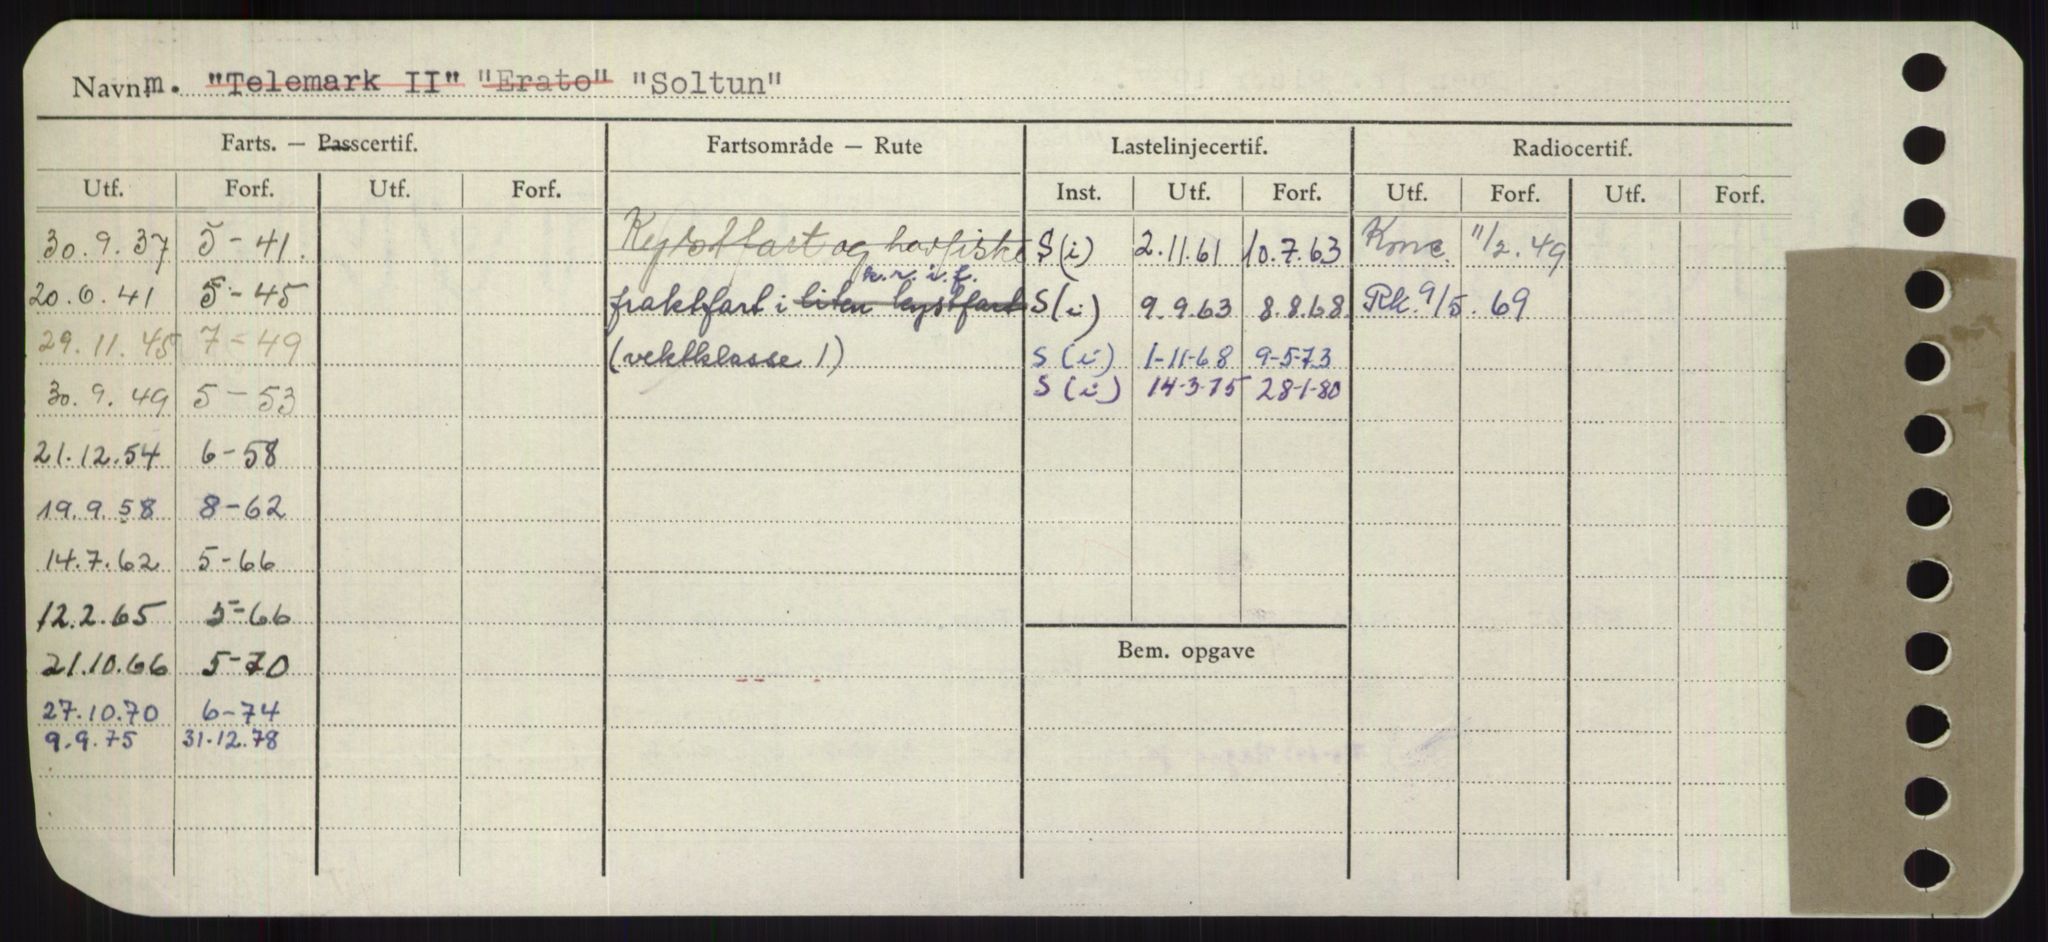 Navn m. "Telemark II" "Erato" "Soltun"
Farts. — Passcertif. Fartsområde — Rute Lastelinjecertif. Radiocertif.
Utf. Forf. Utf. Forf. Inst. Utf. Forf. Utf. Forf. Utf. Forf.
30.9.37 5-41. Kystfart og havfiske S(i) 2.11.61 10.7.63 11/2.49
k.r.i.f.
20.6.41 5-45 fraktfart i liten kystfart S(i) 9.9.63 8.8.68 Rk. 9/5.69
29.11.45 7-49 (vektklasse 1) S(i) 1-11-68 9-5-73
30.9.49 5-53 S(i) 14-3-75 28-1-80
21.12.54 6-58
19.9.58 8-62
14.7.62 5-66
12.2.65 5-66
Bem. opgave
21.10.66 5-70
27.10.70 6-74
9.9.75 31.12.78